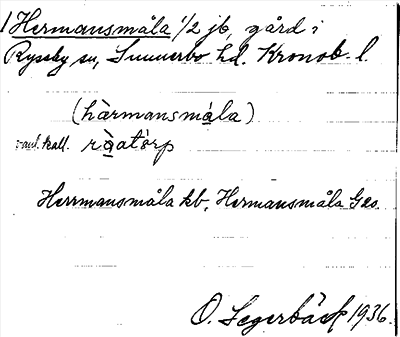 1 Hermansmåla 1/2 jb, gård i
Ryssby sn, Sunnerbo hd. Kronob. l.
(hàrmansmåla)
vanl. kall. ràatòrp
Herrmansmåla kb, Hermansmåla Geo.
O. Segerbäck 1936.